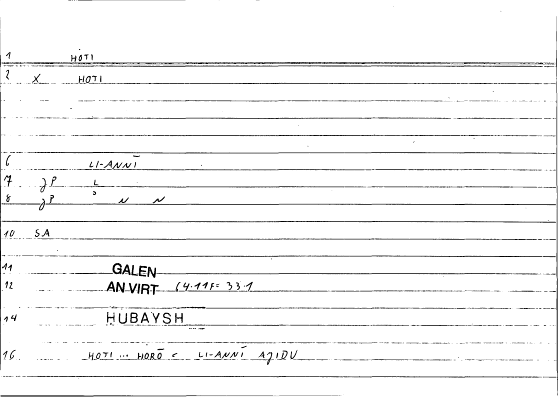 1 HOTI
2 X HOTI
6 LI-ANNĪ
7 jP L
8 jP
10 SA
11 GALEN
12 AN VIRT (4.11F= 33.1
14 HUBAYSH
16 HOTI ... HORŌ < LI-ANNĪ AJIDU